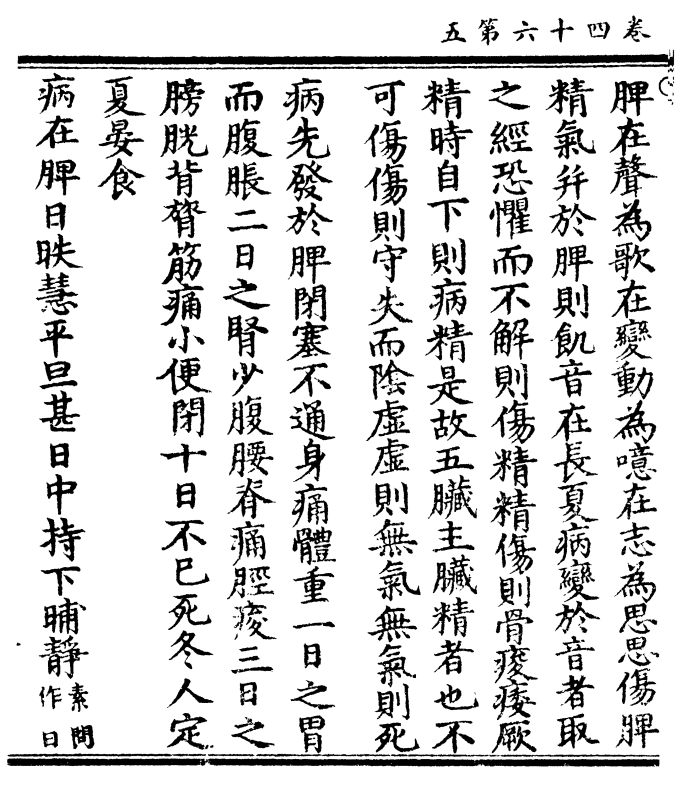 卷四十六第五
脾在聲為歌在變動為噫在志為思思傷脾
精氣并於脾則飢音在長夏病變於音者取
之經恐懼而不解則傷精精傷則骨痠痿厥
精時自下則病精是故五臟主臟精者也不
可傷傷則守失而陰虛虛則無氣無氣則死
病先發於脾閉塞不通身痛體重一日之胃
而腹脹二日之腎少腹腰脊痛脛痠三日之
膀胱背膂筋痛小便閉十日不已死冬人定
夏晏食
病在脾日昳慧平旦甚日中持下晡靜素問
作日